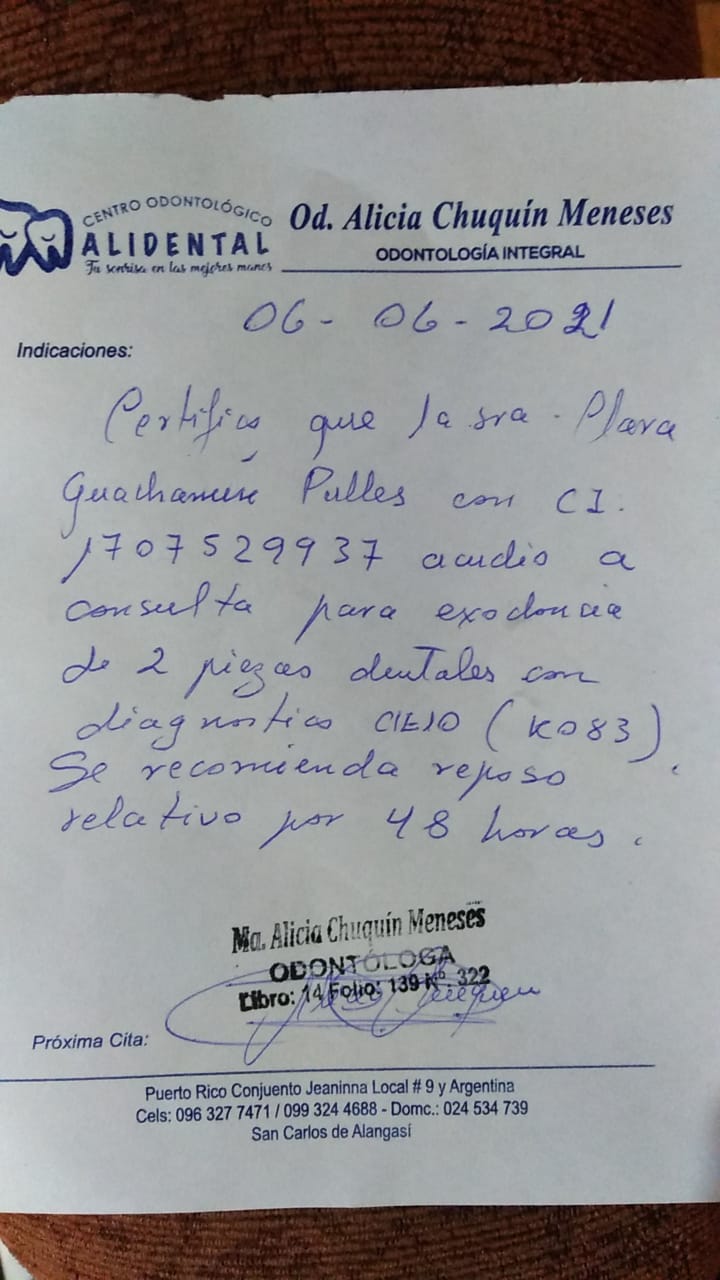 CENTRO ODONTOLÓGICO
ALIDENTAL
Tu sonrisa en las mejores manos
Od. Alicia Chuquín Meneses
ODONTOLOGÍA INTEGRAL
06 - 06 - 2021
Indicaciones:
Certifico que la sra. Plava
Guachamín Pulles con CI.
1707529937 acudio a
consulta para exodoncia
de 2 piezas dentales con
diagnostico CIE10 (K083).
Se recomienda reposo
relativo por 48 horas.
Ma. Alicia Chuquín Meneses
ODONTÓLOGA
Libro: 14 Folio: 139 Nº 322
Próxima Cita:
Puerto Rico Conjuento Jeaninna Local # 9 y Argentina
Cels: 096 327 7471 / 099 324 4688 - Domc.: 024 534 739
San Carlos de Alangasí